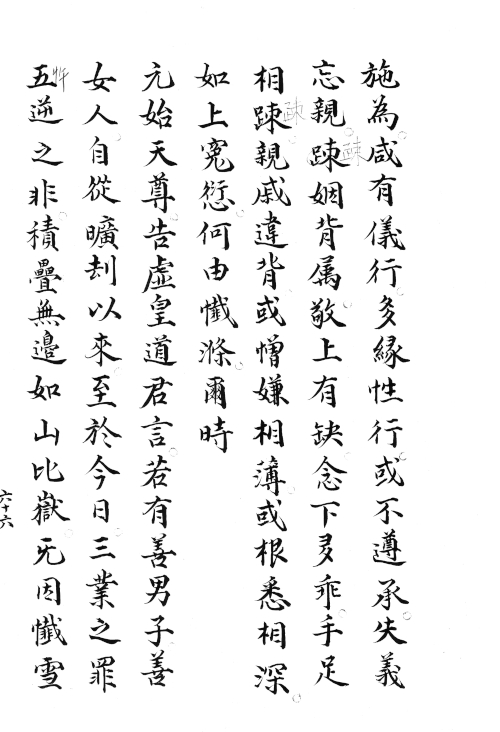 施為咸有儀行多緣性行或不遵承失義
忘親踈姻背属敬上有缺念下多乖手足
相踈親戚違背或憎嫌相薄或根悉相深
如上寃愆何由懺滌爾時
元始天尊告虛皇道君言若有善男子善
女人自從曠刦以來至於今日三業之罪
五逆之非積疊無邊如山比嶽旡因懺雪
六十六